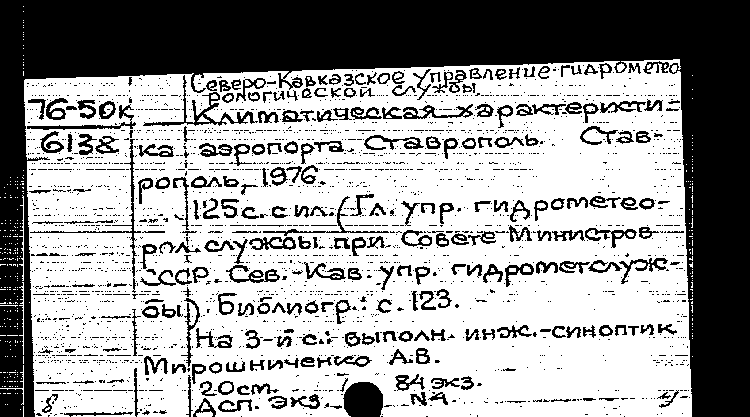 Северо-Кавказское управление гидрометео
рологической службы.
76-50к
Климатическая характеристи-
6138
ка аэропорта Ставрополь. Став-
рополь, 1976.
125с. с ил. (Гл. упр. гидрометео-
рол. службы при Совете Министров
СССР. Сев.-Кав. упр. гидрометслуж-
бы). Библиогр.: с. 123.
На 3-й с.: выполн. инж.-синоптик
Мирошниченко А.В.
20см. 84 экз.
8 Дсп. экз. N4.